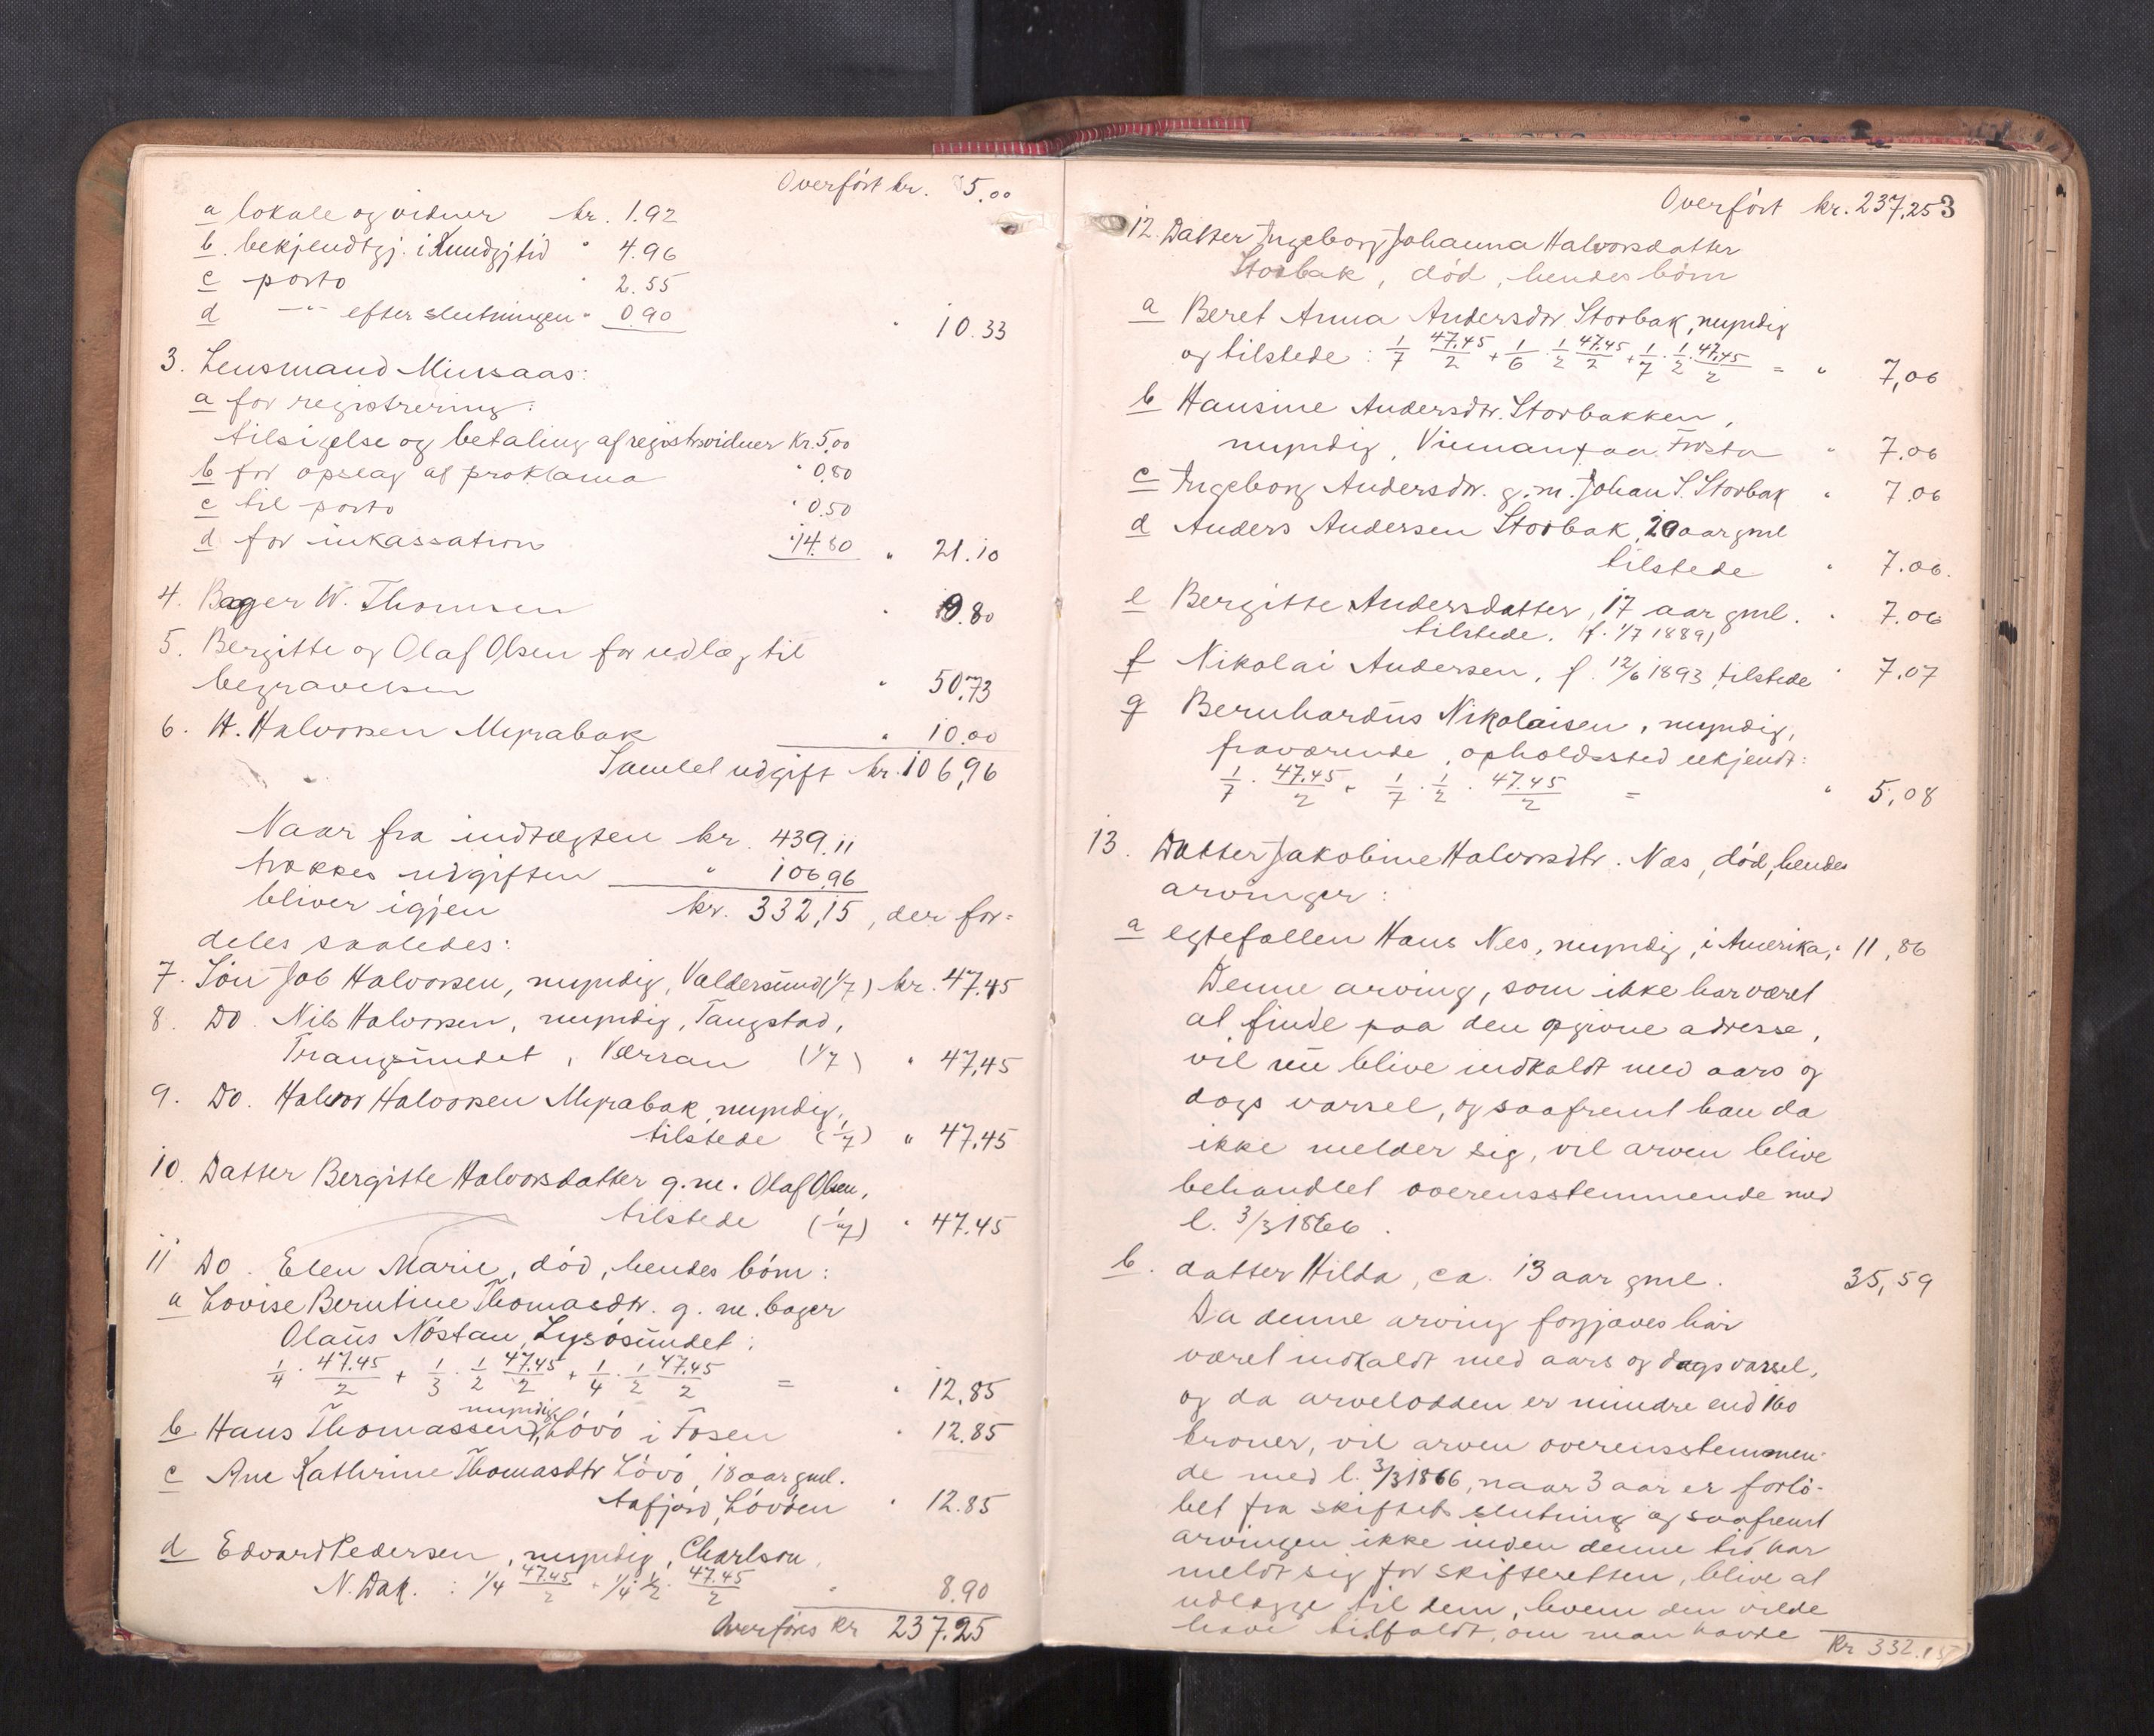 Overført kr. 5.00
a lokale og vidner kr. 1.92
b. bekjendtgj. i Kundgjtid " 4.96
c porto " 2.55
d —"— efter slutningen " 0.90
" 10.33
3. Lensmand Minsaas:
a for registrering:
tilsigelse og betaling af registrvidner Kr. 5,00
b for opslag af proklama " 0,80
c til porto " 0.50
d for inkassation " 14.80 " 21.10
4. Bager W. Thomsen " 9.80
5. Bergitte og Olaf Olsen for udlæg til
begravelsen " 50,73
6. H. Halvorsen Myrabak " 10.00
Samlet udgift kr. 106,96
Naar fra indtægten kr. 439,11
trækkes udgiften " 106,96
bliver igjen kr. 332,15, der for=
deles saaledes:
7. Søn Job Halvorsen, myndig, Valdersund (1/7) kr. 47.45
8. Do. Nils Halvorsen, myndig, Tangstad,
Trangsundet, Værran (1/7) " 47,45
9. Do. Halvor Halvorsen Myrabak, myndig,
tilstede (1/7) " 47.45
10. Datter Bergitte Halvorsdatter g.m. Olaf Olsen,
tilstede (1/7) " 47.45
11 Do. Elen Marie, død, hendes børn:
a Lovise Berntine Thomasdtr. g. m. bager
Olaus Nøstan, Lysøsundet:
1/4 . 47.45/2 + 1/3 . 1/2 47.45/2 + 1/4 . 1/2 47.45/2 = " 12.85
myndig
b Hans Thomassen, Løvø i Fosen " 12.85
c Ane Kathrine Thomasdtr Løvø, 18 aar gml.
Aafjord, Løvøen " 12.85
d Edvard Pedersen, myndig, Charlson,
N. Dak. : 1/4 47.45/2 + 1/4 . 1/2 . 47.45/2 " 8.90
Overføres Kr 237.25
3
Overført kr. 237,25
12. Datter Ingeborg Johanna Halvorsdatter
Storbak, død, hendes børn
a Beret Anna Andersdtr. Storbak, myndig
og tilstede: 1/7 47.45/2 + 1/6 . 1/2 47.45/2 + 1/7 . 1/2 . 47.45/2 = " 7,06
b Hansine Andersdtr. Storbakken,
myndig, Vinnan paa Frosta " 7.06
c Ingeborg Andersdtr. g. m. Johan S. Storbak " 7.06
d Anders Andersen Storbak, 20 aar gml
tilstede " 7.06.
e Bergitte Andersdatter, 17 aar gml. " 7.06
tilstede. (f. 1/7 1889)
f Nikolai Andersen, f. 12/6 1893, tilstede " 7.07
g Bernhardus Nikolaisen, myndig,
fraværende, opholdssted ukjendt:
1/7 . 47.45/2 + 1/7 . 1/2 . 47.45/2 = " 5,08
13. Datter Jakobine Halvorsdtr. Næs, død, hendes
arvinger:
a egtefællen Hans Nes, myndig, i Amerika, " 11,86
Denne arving, som ikke har været
at finde paa den opgivne adresse,
vil nu blive indkaldt med aars og
dags varsel, og saafremt han da
ikke melder sig, vil arven blive
behandlet overensstemmende med
l. 3/3 1866.
b. datter Hilda, ca. 13 aar gml. 35,59
Da denne arving forgjæves har
været indkaldt med aars og dags varsel,
og da arvelodden er mindre end 160
kroner, vil arven overensstemmen-
de med l. 3/3 1866, naar 3 aar er forlø-
bet fra skiftets slutning og saafremt
arvingen ikke inden denne tid har
meldt sig for skifteretten, blive at
udlægge til dem, hvem den vilde
have tilfaldt, om man havde Kr 332.15